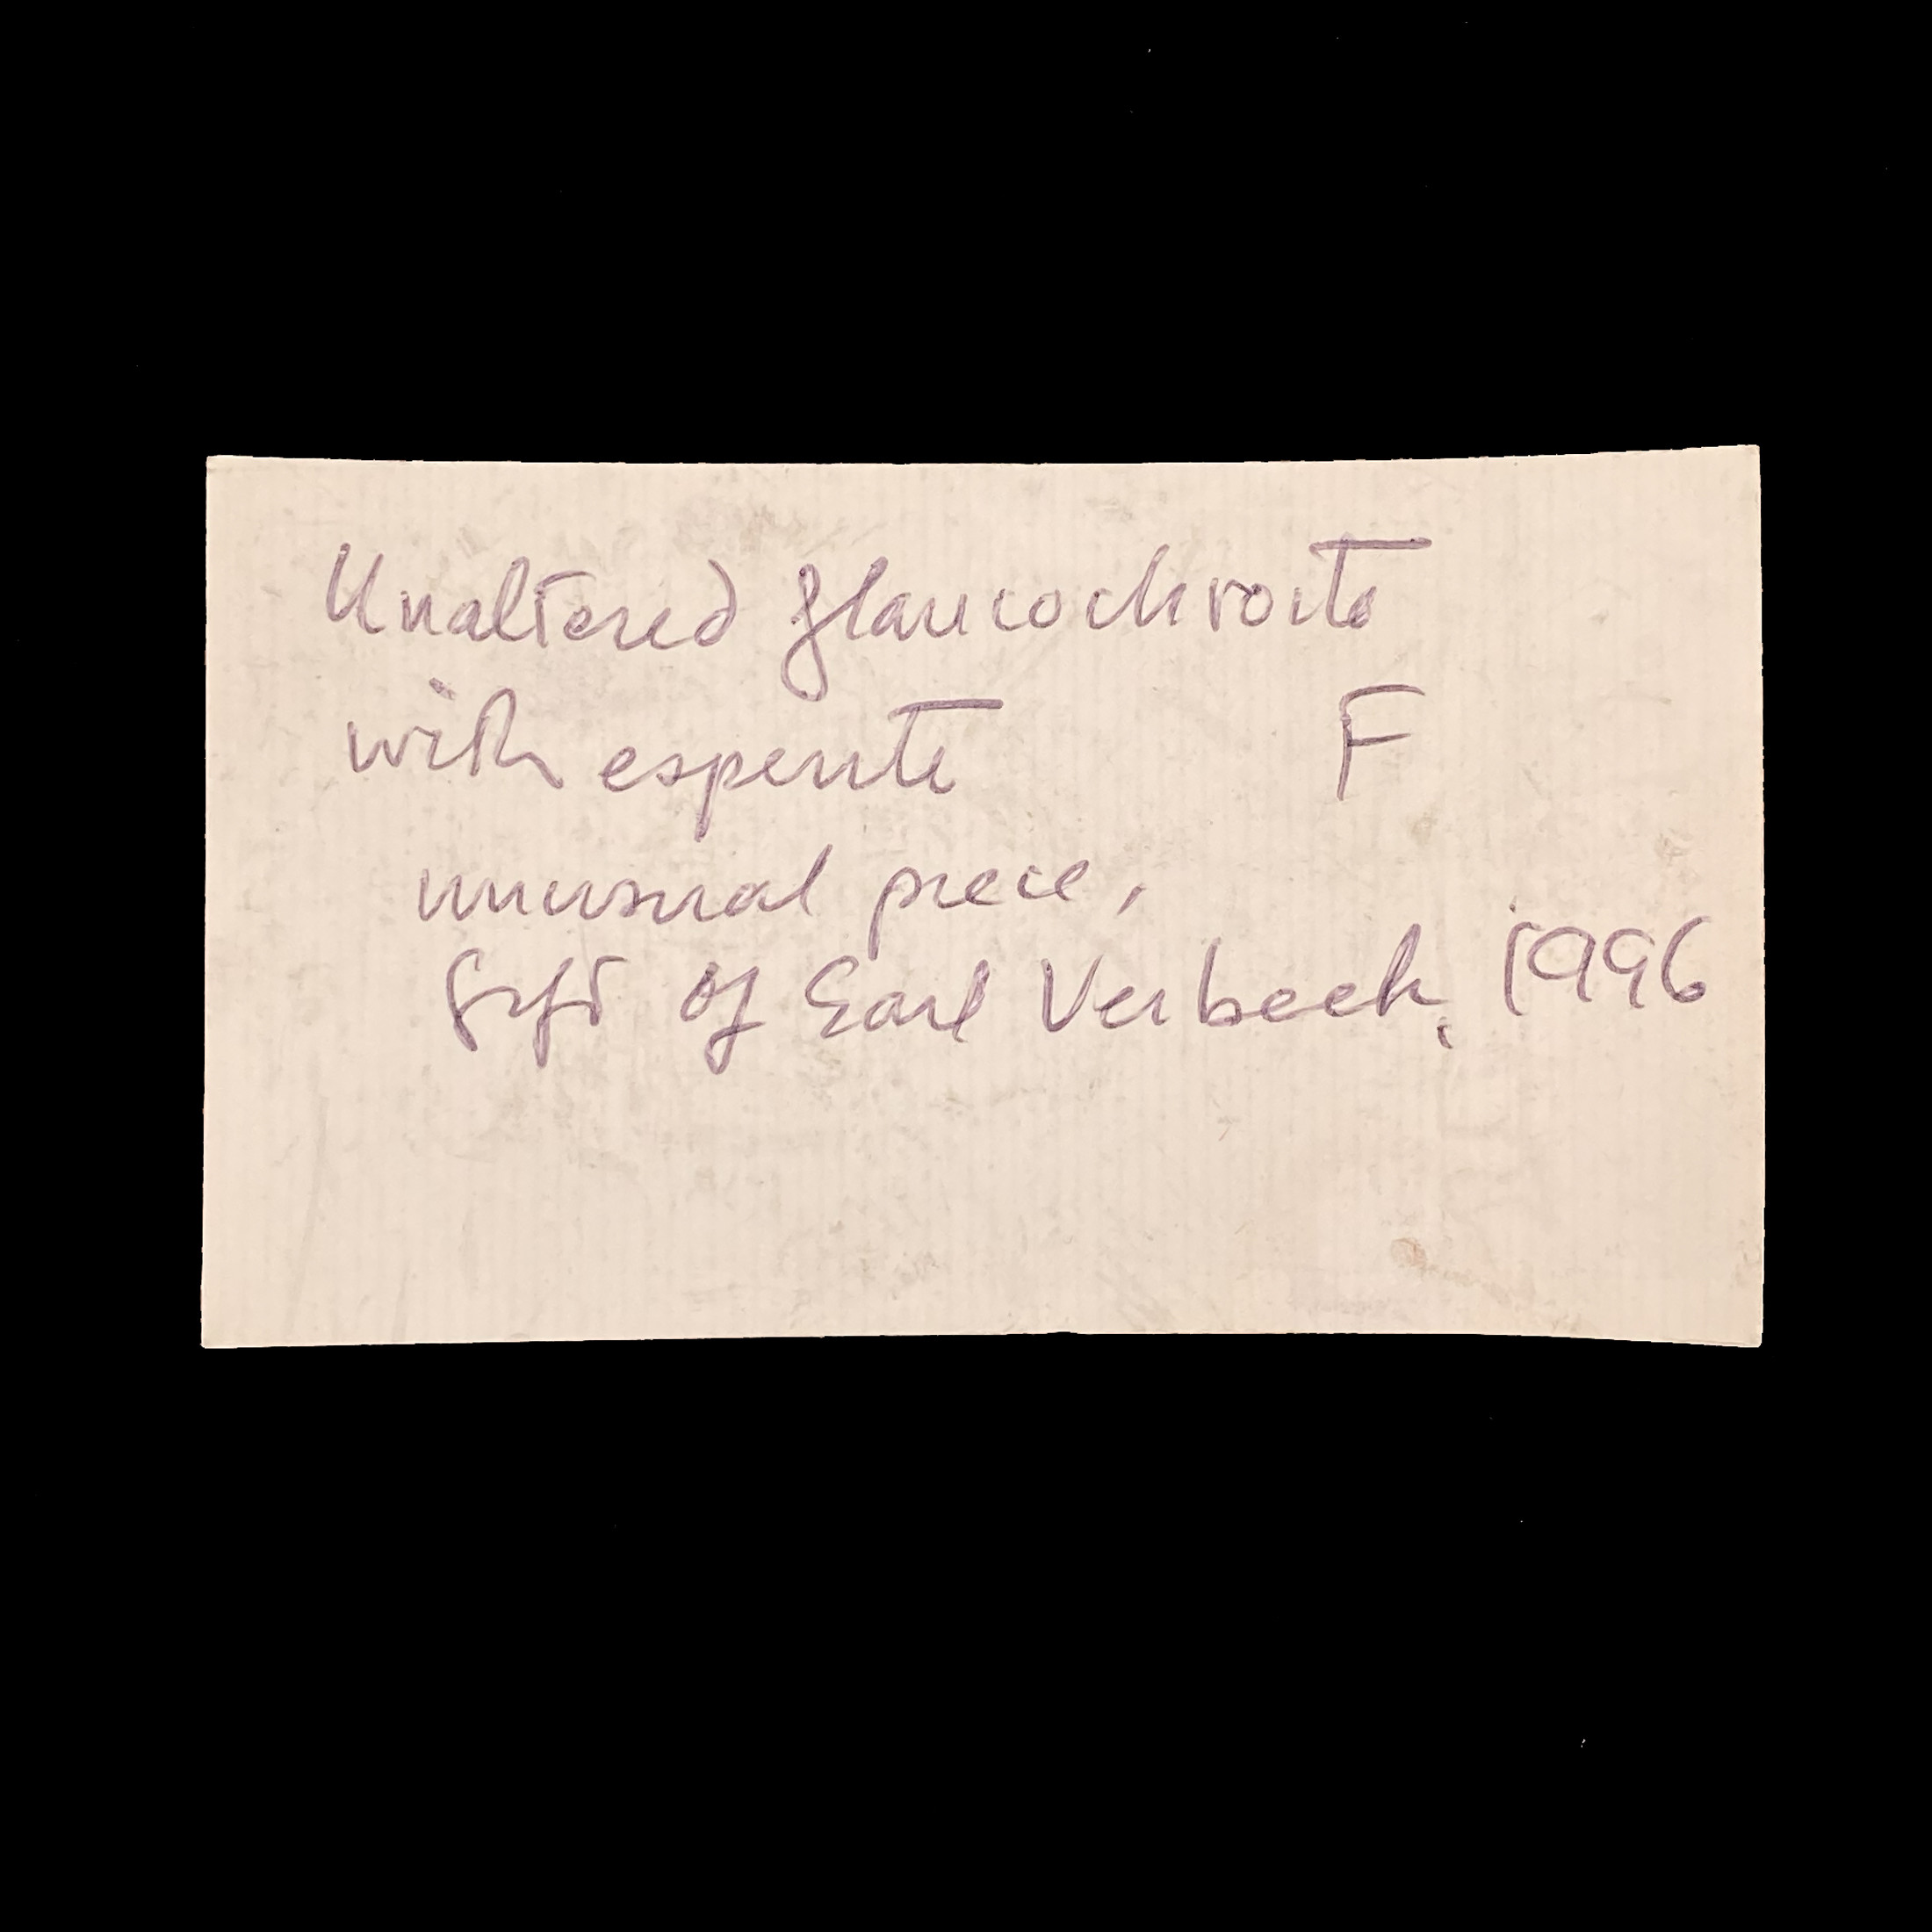 Unaltered glaucochroite
with esperite F
unusual piece,
Gift of Earl Verbeek, 1996